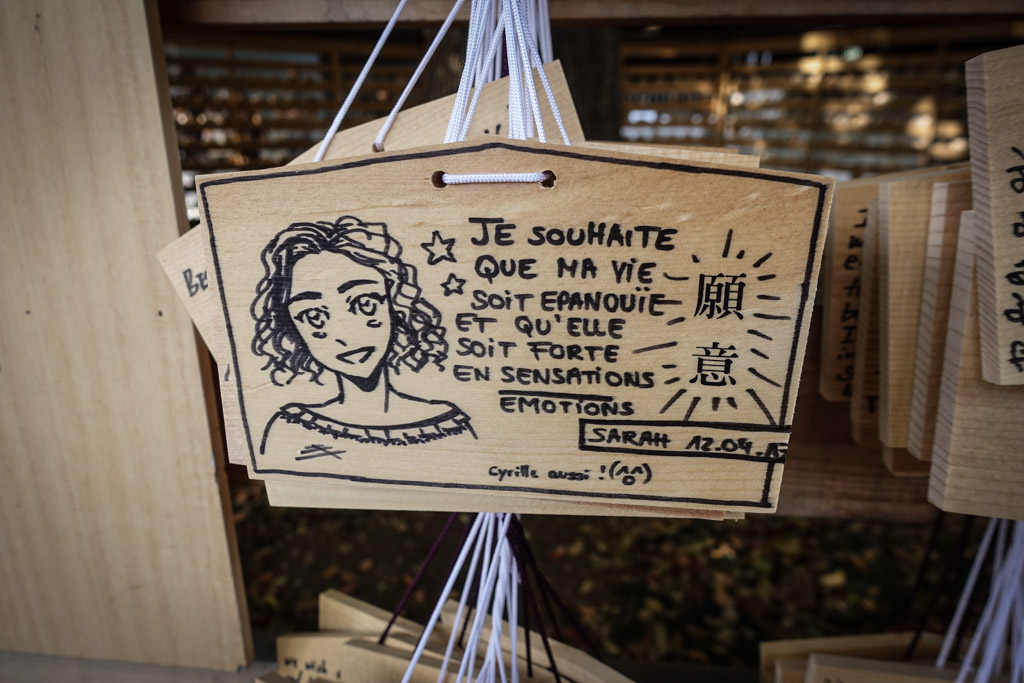 JE SOUHAITE
QUE MA VIE
SOIT EPANOUÏE
ET QU'ELLE
SOIT FORTE
EN SENSATIONS
EMOTIONS
願
意
SARAH 12.04.17
Cyrille aussi ! (^o^)